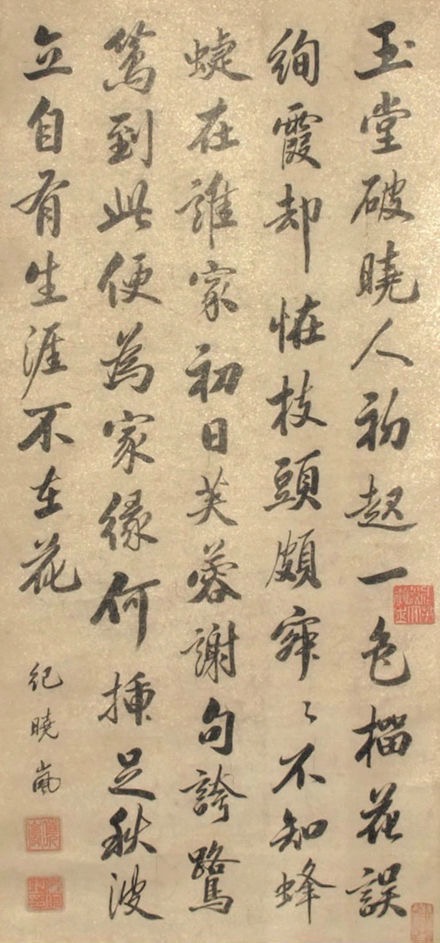 玉堂破曉人初起一色榴花誤
絢霞却怪枝頭頗寂〻不知蜂
蜨在誰家初日芙蓉謝句誇鷺
鶿到此便為家緣何插足秋波
立自有生涯不在花
紀曉嵐